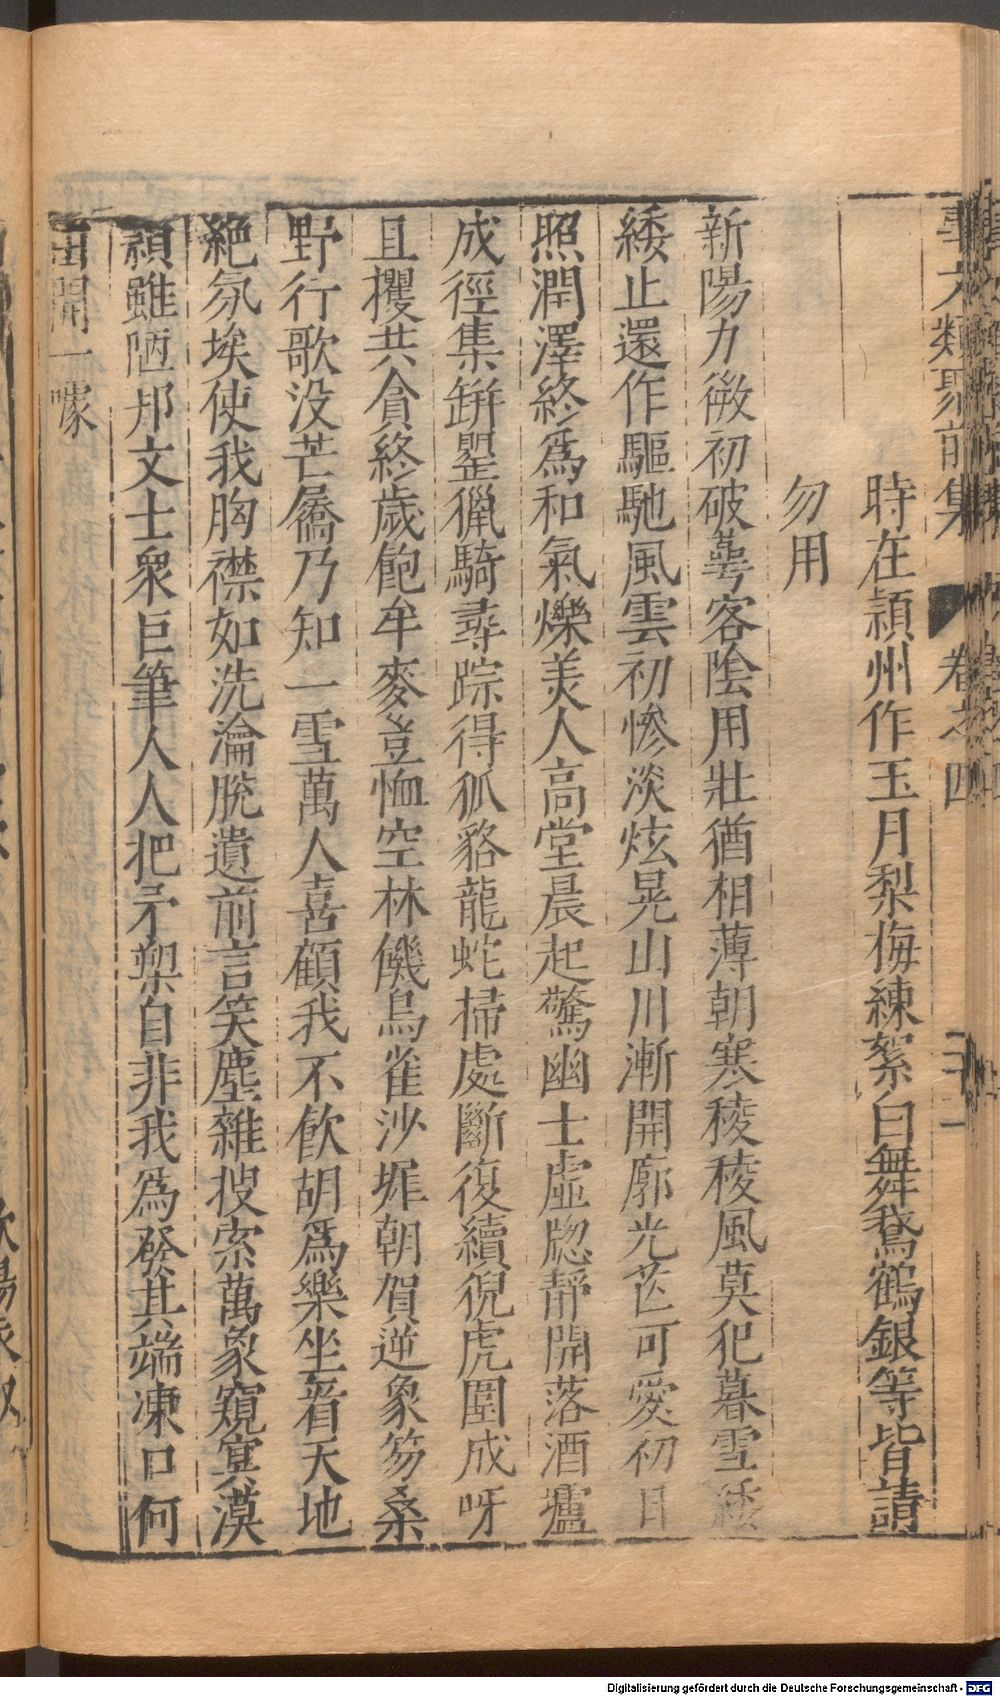 事文類聚前集 卷之四
時在潁州作玉月梨梅練絮白舞鵞鶴銀等皆請
勿用
新陽力微初破萼客陰用壯猶相薄朝寒稜稜風莫犯暮雪緌
緌止還作驅馳風雲初慘淡炫晃山川漸開廓光芒可愛初日
照潤澤終爲和氣爍美人高堂晨起驚幽士虛牕靜聞落酒壚
成徑集缾罌獵騎尋踪得狐貉龍蛇掃處斷復續猊虎圍成呀
且攫共貪終歲飽牟麥豈恤空林饑烏雀沙墀朝賀迷象笏桑
野行歌没芒屩乃知一雪萬人喜顧我不飲胡爲樂坐看天地
絶氛埃使我胸襟如洗瀹脫遺前言笑塵雜搜索萬象窺㝠漠
潁雖陋邦文士衆巨筆人人把矛槊自非我爲發其端凍口何
由開一噱
Digitalisierung gefördert durch die Deutsche Forschungsgemeinschaft - DFG